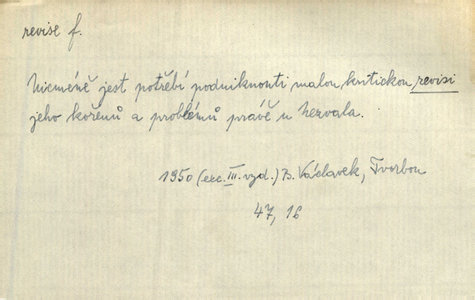 revise f.
Nicméně jest potřebí podniknouti malou kritickou revisi
jeho kořenů a problémů právě u Nezvala.
1950 (exc. III. vyd.) B. Václavek, Tvorbou
47, 16